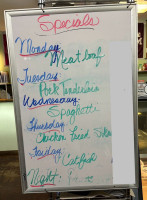 Specials
Monday
Meat loaf
Tuesday
Pork Tenderloin
Wednesday
Spaghetti
Thursday
Chicken Fried Stk
Friday
Catfish
Night